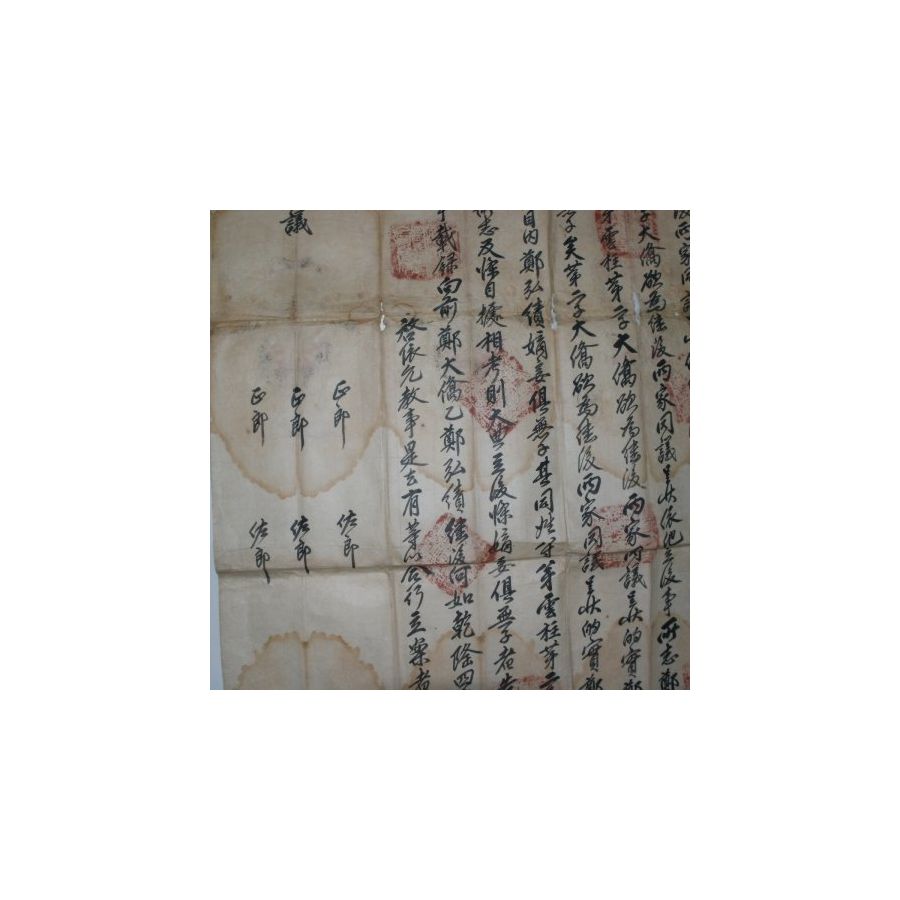 後兩家同
子大僑欲爲継後兩家同議呈狀依他立後事所志鄭
弟雲柱第二子大僑欲爲継後兩家同議呈狀的實鄭
矣第二子大僑欲爲継後兩家同議呈狀的實鄭
目內鄭弘績嫡妾俱無子其同姓弟雲柱第二
所志及條目據相考則大典立後條嫡妾俱無子者告
載錄向前鄭大僑乙鄭弘績継後何如乾隆四
啓依允敎事是去有等以合行立案者
正郎 佐郎
正郎 佐郎
議 正郎 佐郎